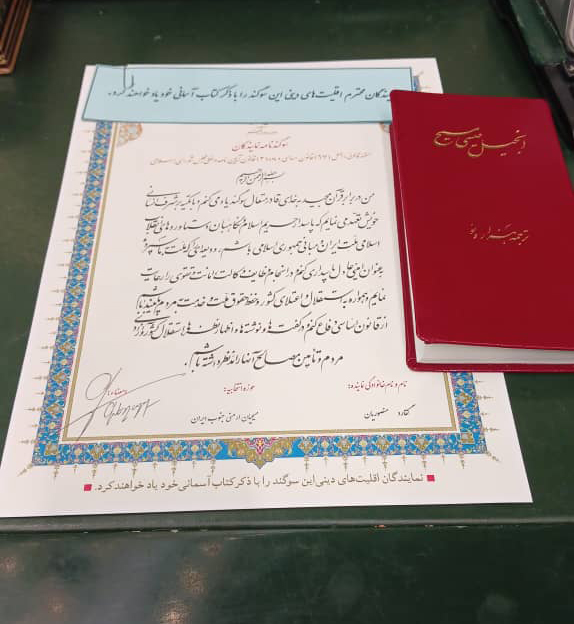 نمایندگان محترم اقلیت‌های دینی این سوگند را با ذکر کتاب آسمانی خود یاد خواهند کرد.
سوگندنامه نمایندگان
بسم الله الرحمن الرحیم
من در برابر قرآن مجید به خدای قادر متعال سوگند یاد می‌کنم و با تکیه بر شرف انسانی
خویش تعهد می‌نمایم که پاسدار حریم اسلام و نگاهبان دستاوردهای انقلاب
اسلامی ملت ایران و مبانی جمهوری اسلامی باشم، ودیعه‌ای را که ملت به ما سپرده
به عنوان امینی عادل پاسداری کنم و در انجام وظایف وکالت امانت و تقوی را رعایت
نمایم و همواره به استقلال و اعتلای کشور و حفظ حقوق ملت و خدمت به مردم پایبند باشم
از قانون اساسی دفاع کنم و در گفته‌ها و نوشته‌ها و اظهارنظرها استقلال کشور و آزادی
مردم و تأمین مصالح آنها را مدنظر داشته باشم.
نام و نام خانوادگی نماینده:
حوزه انتخابیه:
امضاء:
گغارد منصوریان
مسیحیان ارمنی جنوب ایران
نمایندگان اقلیت‌های دینی این سوگند را با ذکر کتاب آسمانی خود یاد خواهند کرد.
انجیل عیسی مسیح
ترجمه هزاره نو